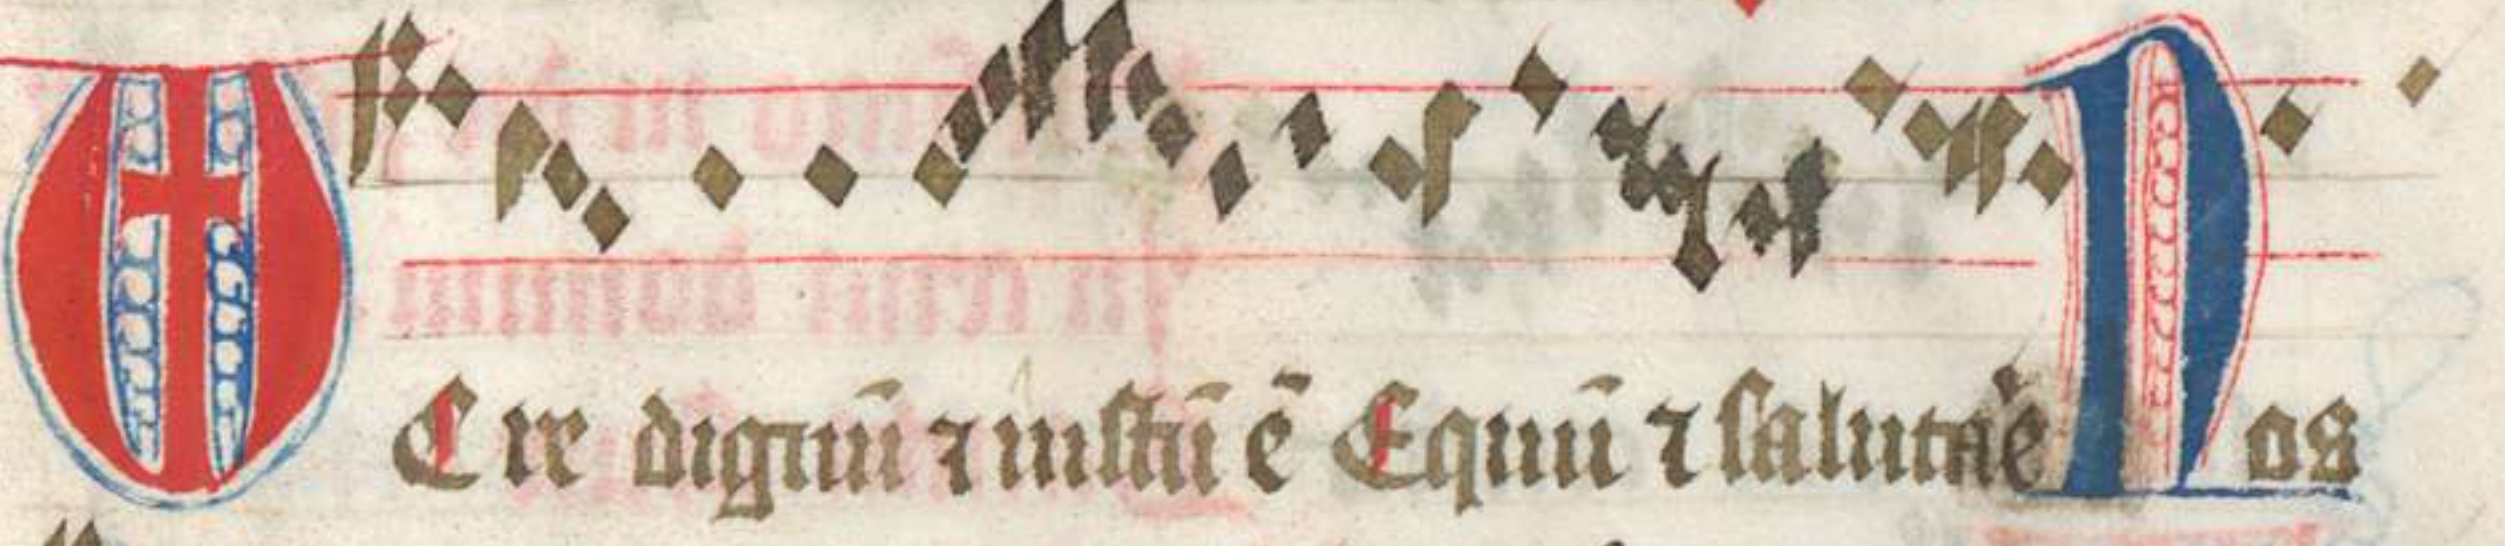 VEre dignū ⁊ iustū ē Equū ⁊ salutar̄e Nos